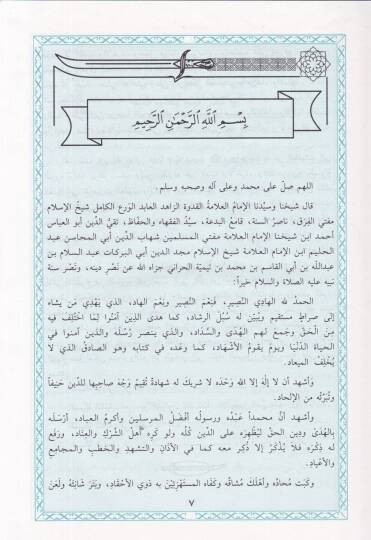 بِسْمِ اللَّهِ الرَّحْمَٰنِ الرَّحِيمِ
اللهم صلّ على محمد وعلى آله وصحبه وسلم.
قال شيخنا وسيِّدنا الإمامُ العلامةُ القدوة الزاهد العابد الوَرِع الكامل شيخُ الإسلام
مفتي الفِرَق، ناصرُ السنة، قامعُ البدعة، سيّدُ الفقهاء والحفّاظ، تقيُّ الدِّين أبو العباس
أحمد ابن شيخنا الإمام العلامة مفتي المسلمين شهاب الدِّين أبي المحاسن عبد
الحليم ابن الإمام العلامة شيخ الإسلام مجد الدين أبي البركات عبد السلام بن
عبدالله بن أبي القاسم بن محمد بن تيميّة الحراني جزاه الله عن نَشْر دينه، ونَصْر سنة
نبيه عليه الصلاة والسلام خيراً:
الحمدُ لله الهادي النَّصِير، فَنِعْمَ النَّصِير ونِعْمَ الهاد، الذي يَهْدِي مَن يشاء
إلى صراطٍ مستقيم ويُبَيِّن له سُبُلَ الرشاد، كما هدى الذِين آمَنُوا لِمَا اخْتَلَفَ فيه
مِن الحَقِّ وجَمعَ لهم الهُدَى والسَّدَاد، والذي ينصر رُسُلَه والذِين آمنوا في
الحياة الدُّنْيا ويومَ يقومُ الأشْهَاد، كما وَعَدَه في كتابه وهو الصادقُ الذي لا
يُخْلِفُ الميعاد.
وأشهد أن لا إلٰهَ إلا الله وَحْدَه لا شريكَ له شهادةً تُقِيمُ وَجْهَ صاحِبِها للدِّين حَنِيفاً
وتُبَرِّئُه من الإلحاد.
وأشهد أنَّ محمداً عَبْدُه ورسولُه أفْضَلُ المرسلين وأكرمُ العباد، أرْسَلَه
بالهُدَىٰ ودِينِ الحقّ ليُظْهِرَه على الدِّين كُلِّه ولو كَرِه أهلُ الشّرْكِ والعِنَاد، ورَفَع
له ذِكْرَه فلاَ يُذْكَرُ إلا ذُكِر معه كما في الأذَانِ والتشهدِ والخُطَبِ والمجامعِ
والأعْيَادِ.
وكَبَت مُحادَّه وأهْلَكَ مُشاقَّه وكَفَاه المسْتَهْزِئينَ به ذَوِي الأحْقَادِ، وبَتَرَ شَانِئَه ولَعَنَ
٧